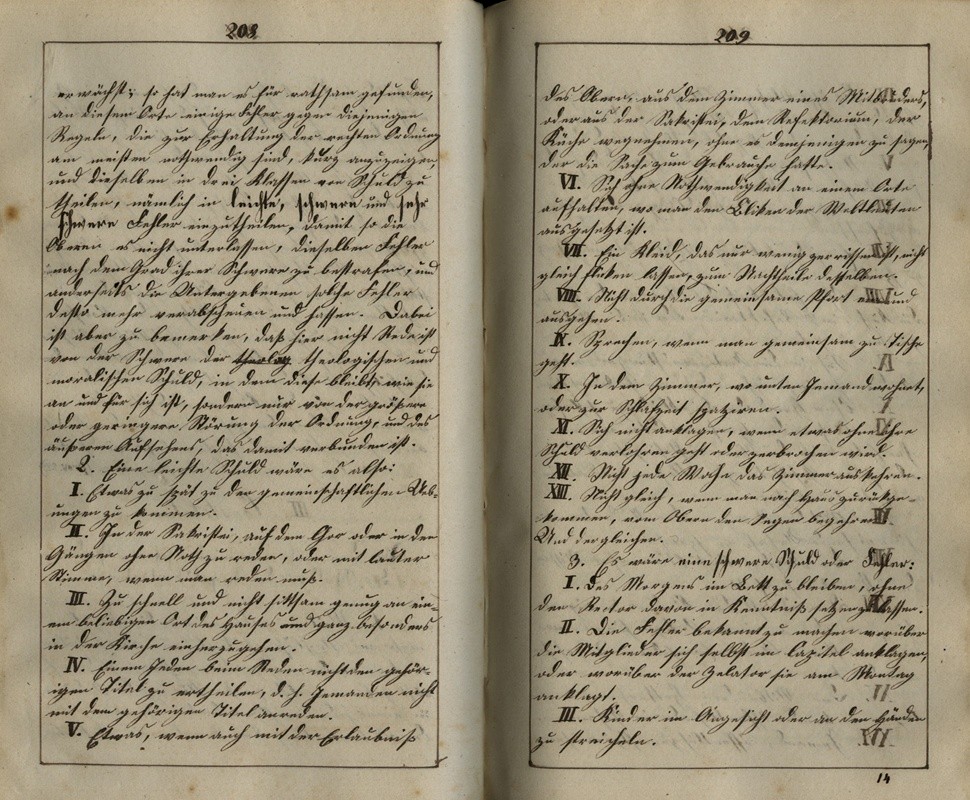 208
erwächst; so hat man es für rathsam gefunden,
an diesem Orte einige Fehler gegen diejenigen
Regeln, die zur Erhaltung der rechten Ordnung
am meisten nothwendig sind, kurz anzuzeigen
und dieselben in drei Klassen von Schuld zu
theilen, nämlich in leichte, schwere und sehr
schwere Fehler einzutheilen, damit so die
Obern es nicht unterlassen, dieselben Fehler
nach dem Grad ihrer Schwere zu bestrafen, und
anderseits die Untergebenen solche Fehler
desto mehr verabscheuen und hassen. Dabei
ist aber zu bemerken, daß hier nicht Rede ist
von der Schwere der theolog theologischen und
moralischen Schuld, in dem diese bleibt, wie sie
an und für sich ist, sondern nur von der größere
oder geringere Störung der Ordnung, und des
äußeren Aufsehens, das damit verbunden ist.
2. Eine leichte Schuld wäre es also:
I. Etwas zu spät zu den gemeinschaftlichen Üb-
ungen zu kommen.
II. In der Sakristei, auf dem Chor oder in den
Gängen ohne Noth zu reden, oder mit lauter
Stimme, wenn man reden muß.
III. Zu schnell und nicht sittsam genug an ein-
em beliebigen Ort des Hauses und ganz besonders
in der Kirche einherzugehen.
IV. Einem Jeden beim Reden nicht den gehör-
igen Titel zu ertheilen, d. h. Jemanden nicht
mit dem gehörigen Titel anreden.
V. Etwas, wenn auch mit der Erlaubniß
209
des Obern, aus dem Zimmer eines Mitbruders,
oder aus der Sakristei, dem Refektorium, der
Küche wegnehmen, ohne es demjenigen zu sagen,
der die Sache zum Gebrauche hatte.
VI. Sich ohne Nothwendigkeit an einem Orte
aufhalten, wo man den Bliken der Weltleuten
ausgesetzt ist.
VII. Ein Kleid, das nur wenig zerrissen ist, nicht
gleich fliken lassen, zum Nachtheile desselben.
VIII. Nicht durch die gemeinsame Pfort ein und
ausgehen.
IX. Sprechen, wenn man gemeinsam zu Tische
geht.
X. In dem Zimmer, wo unten Jemand wohnt,
oder zur Schlafzeit spaziren.
XI. Sich nicht anklagen, wenn etwas ohne Ihre
Schuld verlohren geht oder zerbrochen wird.
XII. Nicht jede Woche das Zimmer auskehren.
XIII. Nicht gleich, wenn man nach Haus zurükge-
kommen, vom Obern den Segen begehren
Und dergleichen.
3. Es wäre eine schwere Schuld oder Fehler:
I. Des Morgens im Bett zu bleiben, ohne
den Rector davon in Kenntniß setzen zu lassen.
II. Die Fehler bekannt zu machen worüber
die Mitglieder sich selbst im Capitel anklagen,
oder worüber der Zelator sie am Montag
anklagt.
III. Kinder im Angesicht oder an den Händen
zu streicheln.
14